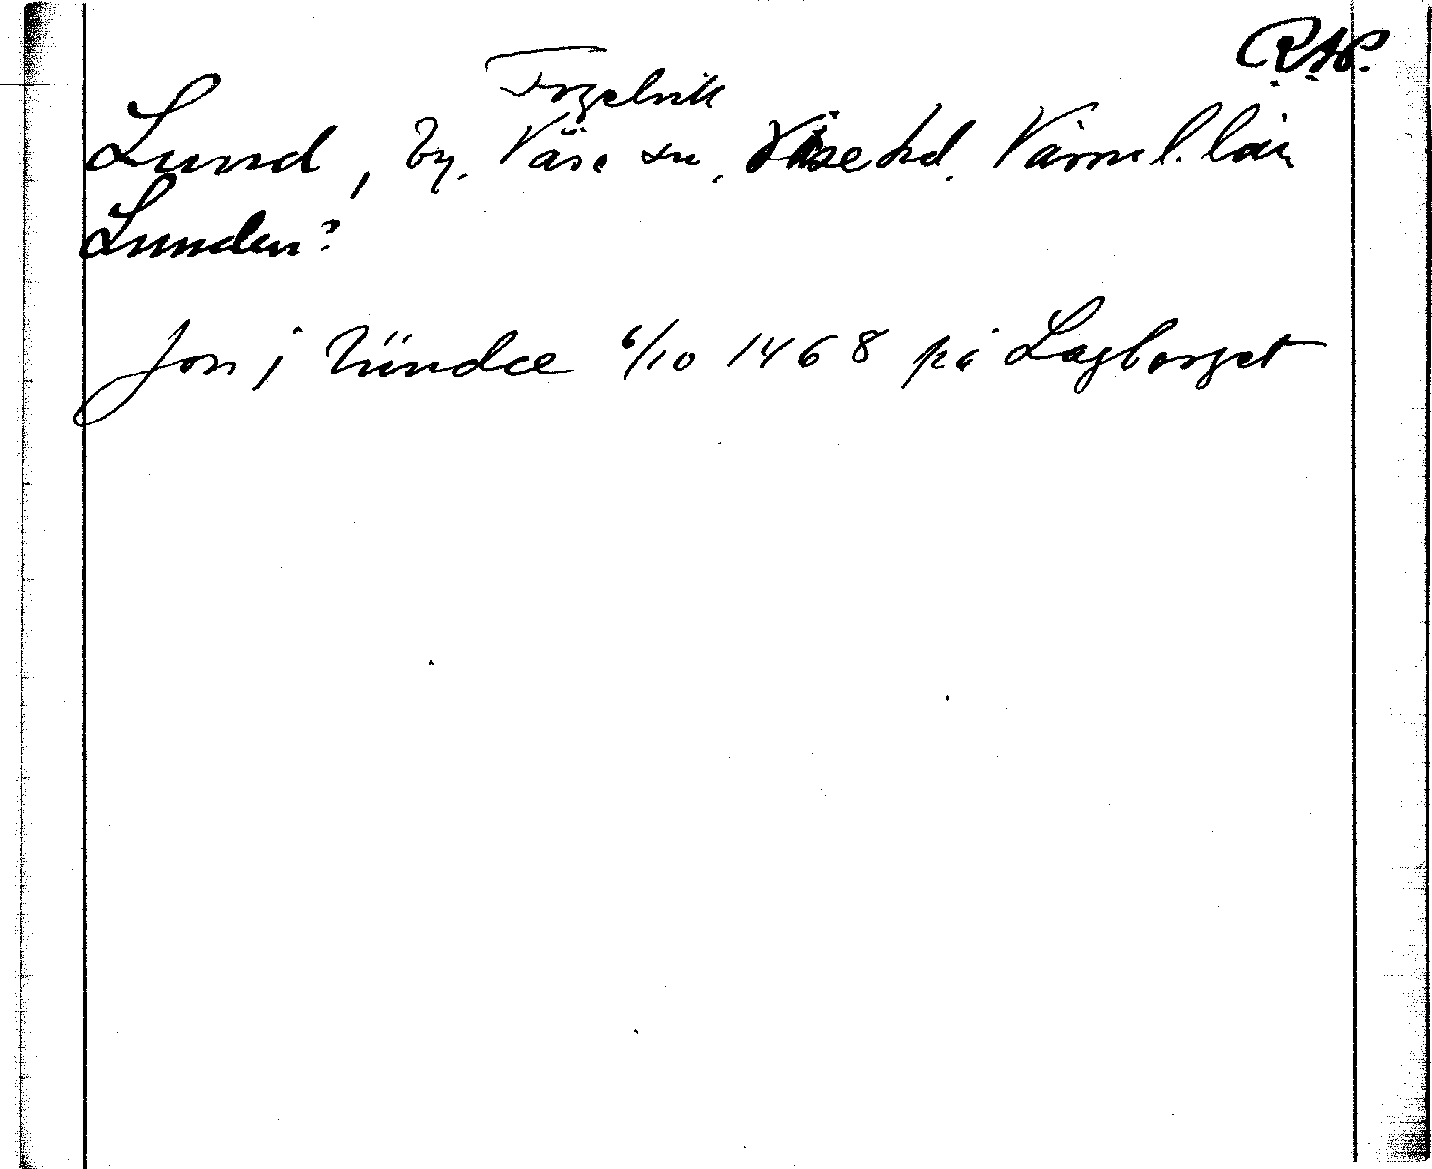 R.A.P.
Fogelvik
Lund, by. Väse sn. Väse hd. Värml. län
Lunden?
Jon i lündæ 6/10 1468 på Lagberget